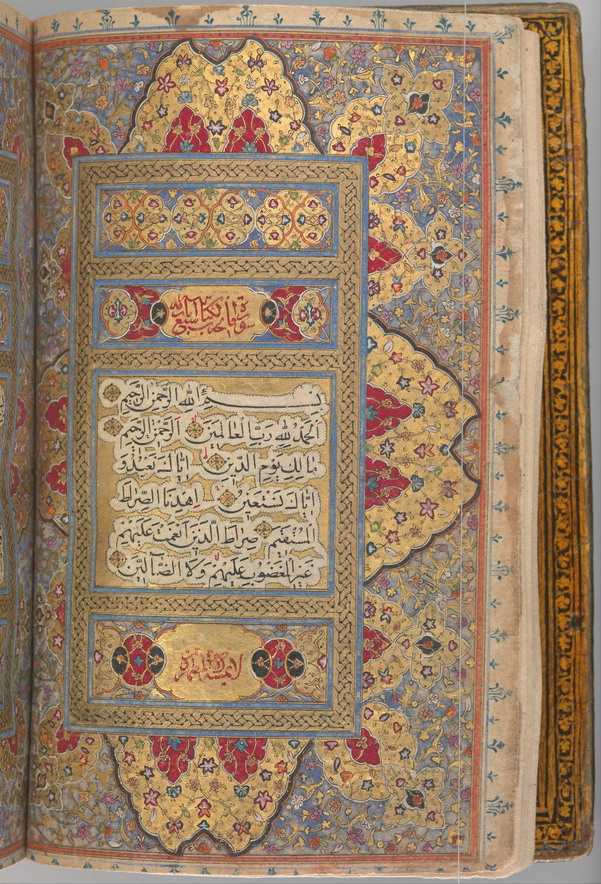 سورة فاتحة الكتاب سبع آيات
بِسْمِ اللهِ الرَّحْمٰنِ الرَّحِيمِ
اَلْحَمْدُ لِلّٰهِ رَبِّ الْعَالَمِينَ اَلرَّحْمٰنِ الرَّحِيمِ
مَالِكِ يَوْمِ الدِّينِ اِيَّاكَ نَعْبُدُ وَ
اِيَّاكَ نَسْتَعِينُ اِهْدِنَا الصِّرَاطَ
الْمُسْتَقِيمَ صِرَاطَ الَّذِينَ اَنْعَمْتَ عَلَيْهِمْ
غَيْرِ الْمَغْضُوبِ عَلَيْهِمْ وَلَا الضَّالِّينَ
لا يمسه إلا المطهرون